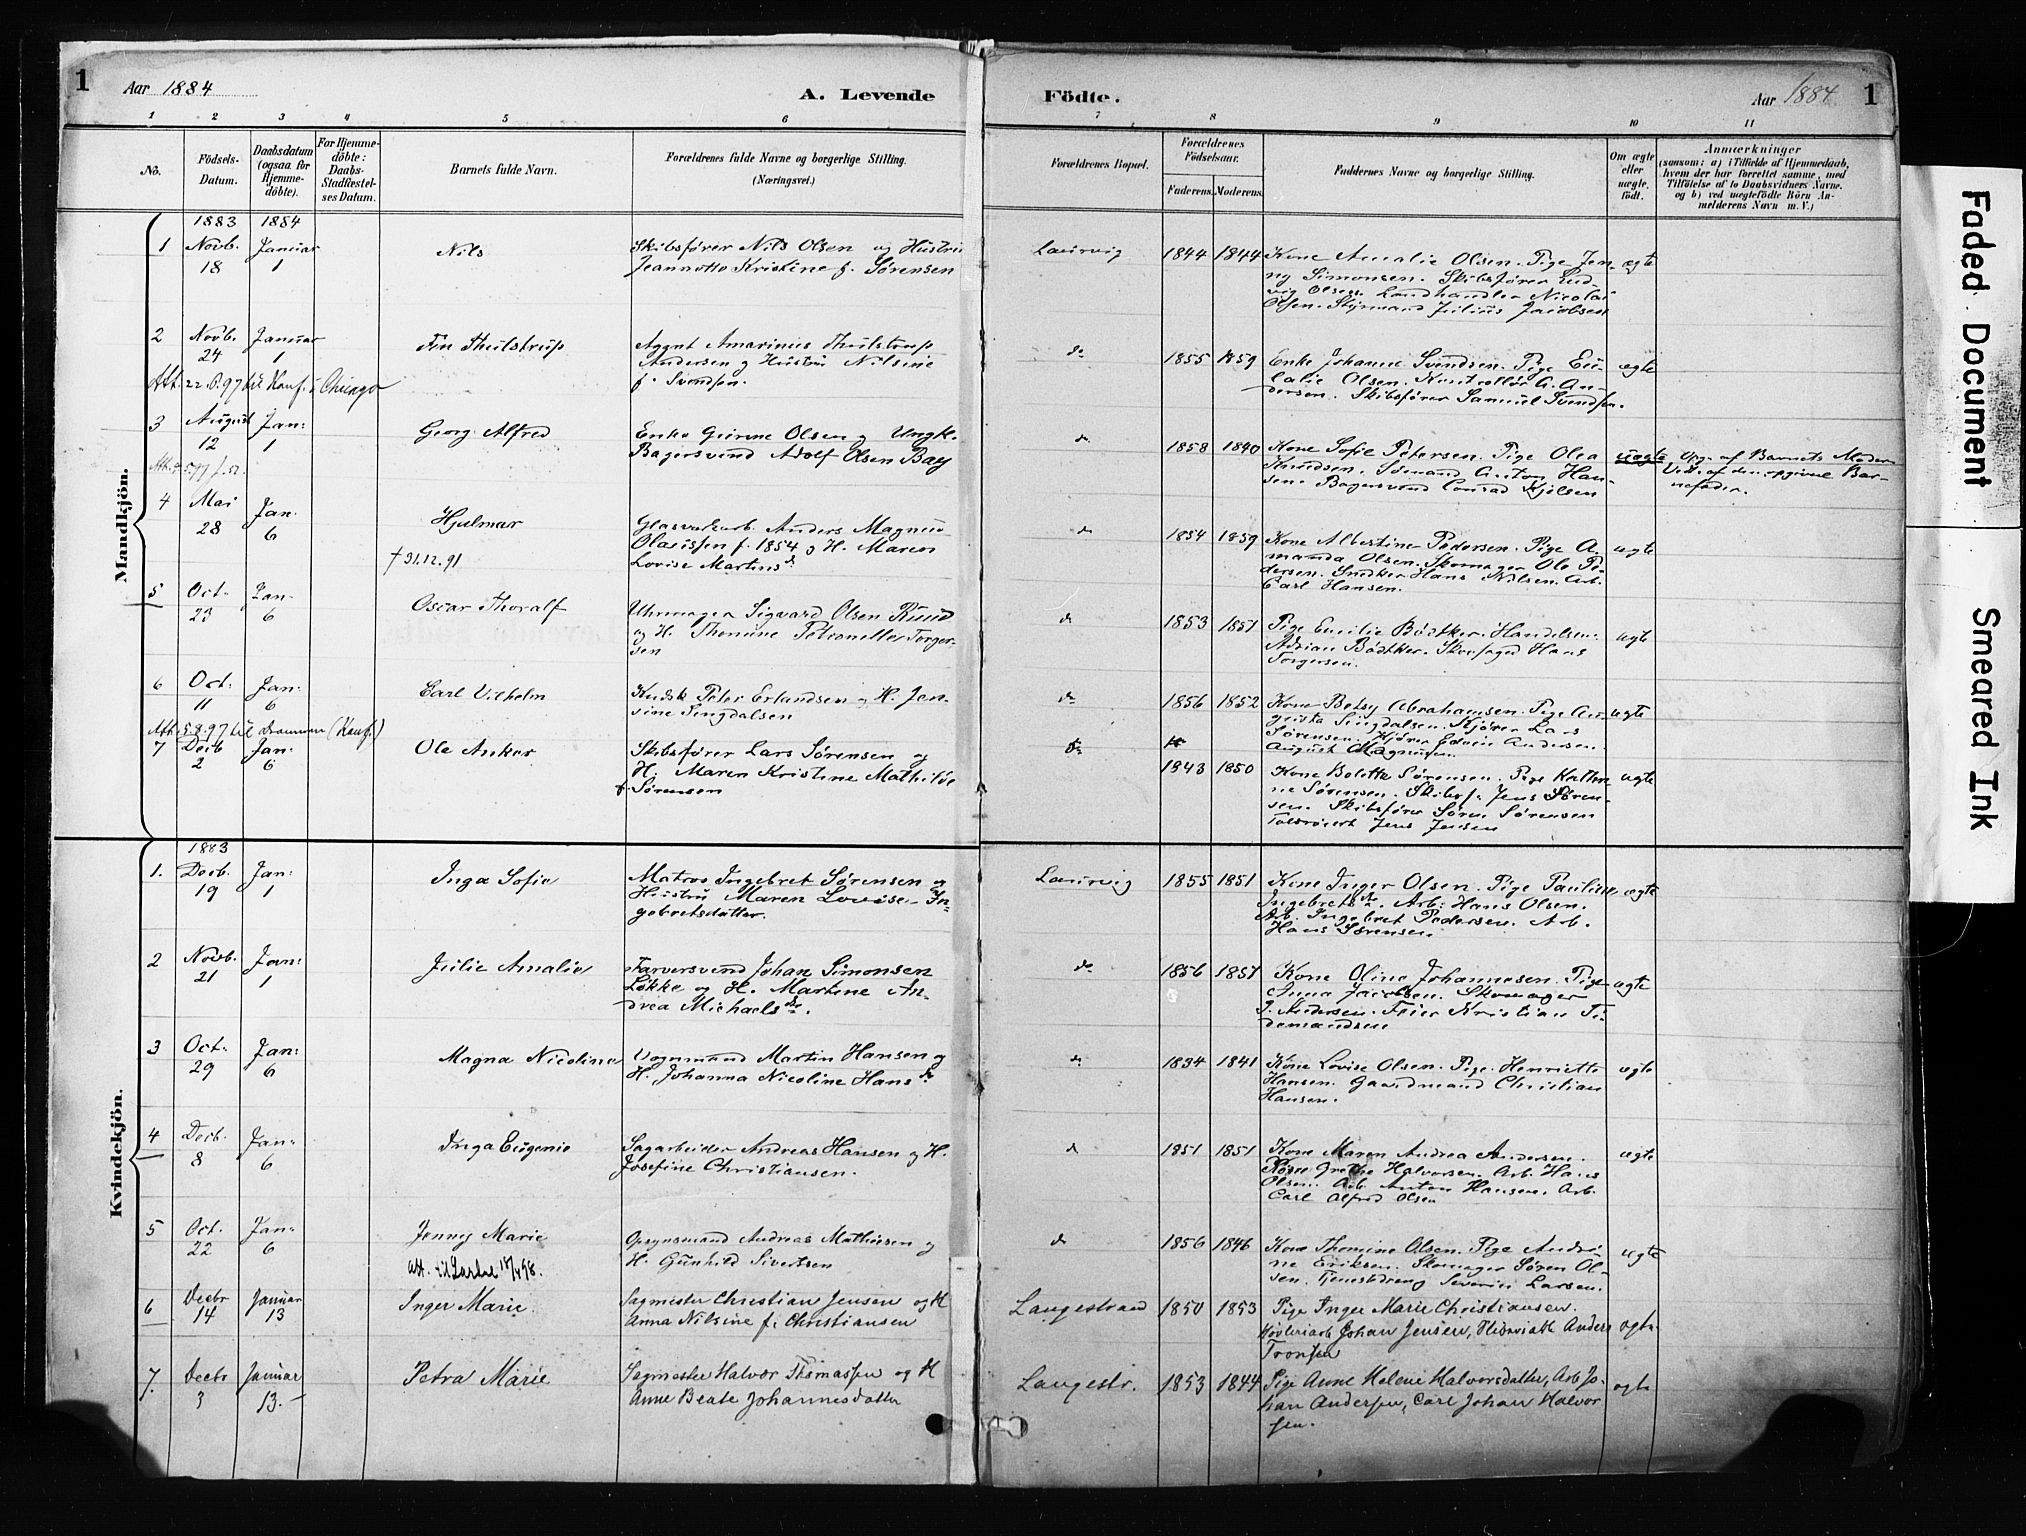 1
Aar 1884
A. Levende
Födte.
Aar 1884
1
1 2 3 4 5 6 7 8 9 10 11
No.
Födsels-
Datum.
Daabsdatum
(ogsaa for
Hjemme-
döbte).
For Hjemme-
döbte:
Daabs-
Stadfæstel-
ses Datum.
Barnets fulde Navn.
Forældrenes fulde Navne og borgerlige Stilling.
(Næringsvei.)
Forældrenes Bopæl.
Forældrenes
Födselsaar.
Faderens. Moderens.
Faddernes Navne og borgerlige Stilling.
Om ægte
eller
uægte
född.
Anmærkninger
(saasom: a) i Tilfælde af Hjemmedaab,
hvem der har forrettet samme, med
Tilföielse af to Daabsvidners Navne.
og b) ved uægtefödte Börn An-
melderens Navn m. V.)
Mandkjön.
1883 1884
1 Novb. 18 Januar 1
Nils
Skibsfører Nils Olsen og Hustru
Jeannette Kristine f. Sørensen
Laurvig 1844 1844
Kone Amalie Olsen. Pige Jen-
ny Simonsen. Skibsfører Lud-
vig Olsen. Landhandler Nicolai
Olsen. Styrmand Julius Jacobsen
ægte
2 Novb. 24 Januar 1
Thulstrup
Agent Amarinus Thulstrup
Andersen og Hustru Nilsine
f. Svendsen.
do 1855 1859
Enke Johanne Svendsen. Pige Eu-
lalie Olsen. Kontrollør A. An-
dersen. Skibsfører Samuel Svendsen.
ægte
Att. 22.8.97 til Konf. i Chicago
3 August 12 Jan: 1
Georg Alfred
Enke Gurine Olsen og Ungk.
Bagersvend Adolf Olsen Bay
do 1858 1840
Kone Sofie Petersen. Pige Olea
Knudsen. Sømand Anton Han-
sen. Bagersvend Conrad
uægte
Opg. af Barnets Moder
Vedt. af den opgivne Bar-
nefader.
4 Mai 28 Jan: 6
Hjalmar
† 31.12.91
Glasverksarb. Anders Magnus
Olaussen f. 1854 og H. Maren
Lovise Martins dr
do 1854 1859
Kone Albertine Pedersen. Pige A-
manda Olsen. Skomager Ole Pe-
dersen. Snedker Hans Nilsen. Arb.
Carl Hansen.
ægte
5 Oct. 23 Jan. 6
Oscar Thoralf
Uhrmager Sigvard Olsen Ruud
og H. Thomine Petronelle Torger-
sen
do 1853 1857
Pige Emilie Bødtker. Handelsm:
Adrian Bødtker. Hans
Torgersen.
ægte
6 Oct. 11 Jan: 6
Carl Vilhelm
Kudsk Peter Erlandsen og H. Jen-
sine Lingdalsen
do 1856 1852
Kone Betsy Abrahamsen. Pige Au-
gusta Lingdalsen. Kjører Lars
Sørensen. Kjører Edvin Andersen.
August Magnussen
ægte
Att. 5.8.97 til Drammen (Konf.)
7 Decb. 2 Jan: 6
Ole Anker
Skibsfører Lars Sørensen og
H. Maren Kristine Mathilde
f. Sørensen
do 1843 1850
Kone Bolette Sørensen. Pige Kathri-
ne Sørensen. Skibsf. Jens Søren-
sen. Skibsfører Søren Sørensen
Toldroiert Jens Jensen
ægte
Kvindekjön.
1883
1. Decb. 19 Jan: 1
Inga Sofie
Matros Ingebret Sørensen og
Hustru Maren Lovise In-
gebretsdatter.
Laurvig 1855 1851
Kone Inger Olsen. Pige Pauline
Ingebrets dr. Arb: Hans Olsen.
Arb. Ingebret Pedersen. Arb.
Hans Sørensen
ægte
2 Novb. 21 Jan: 1
Julie Amalie
Farversvend Johan Simonsen
Løkke og H. Martine An-
drea Michaels dr.
do 1856 1857
Kone Oline Johannesen. Pige
Anna Jacobsen. Skomager
J. Andersen. Feier Kristian Ti-
demandsen
ægte
3 Oct. 29 Jan: 6
Magna Nicoline
Vognmand Martin Hansen og
H. Johanna Nicoline Hans dr
do 1834 1841
Kone Lovise Olsen. Pige Henriette
Hansen. Gaardmand Christian
Hansen.
ægte
4 Decb. 8 Jan: 6
Inga Eugenie
Sagarbeider Andreas Hansen og H.
Josefine Christiansen.
do 1851 1851
Kone Maren Andrea Andersen.
Kone Grethe Halvorsen. Arb. Hans
Olsen. Arb. Anton Hansen. Arb.
Carl Alfred Olsen
ægte
5 Oct. 22 Jan: 6
Jenny Marie
Opsynsmand Andreas Mathisen og
H. Gunhild Sivertsen
do 1856 1846
Kone Thomine Olsen. Pige Andri-
ne Eriksen. Skomager Søren Ol-
sen. Tjenestedreng Severin Larsen.
ægte
6 Decbr 14 Januar 13
Inger Marie
Sagmester Christian Jensen og H
Anna Nilsine f. Christiansen
Langestrand 1850 1853
Pige Inger Marie Christiansen.
Høvleriarb Johan Jensen, Anders
Tronsen
ægte
7. Decbr 3 Januar 13.
Petra Marie
Sagmester Halvor Thomassen og H
Anne Beate Johannesdatter
Langestr. 1853 1844
Pige Anne Helene Halvorsdatter, Arb Jo-
han Andersen, Carl Johan Halvor
sen.
ægte
Faded Document
Smeared Ink